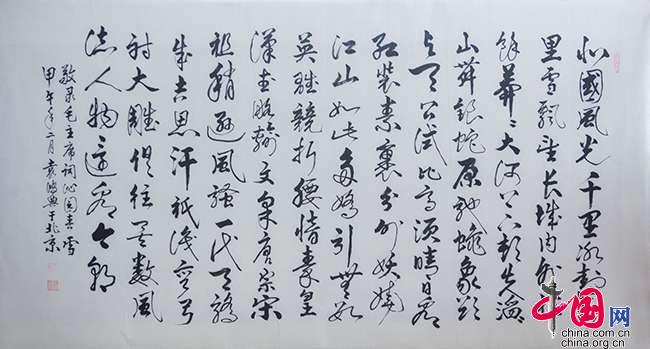 北國風光千里冰封
里雪飄望長城内外
餘莽莽大河上下頓失滔
山舞銀蛇原馳蠟象欲
与天公試比高須晴日看
紅裝素裹分外妖嬈
江山如此多嬌引無數
英雄競折腰惜秦皇
漢武略輸文采唐宗宋
祖稍遜風騷一代天驕
成吉思汗祇識彎弓
射大雕俱往矣數風
流人物還看今朝
敬录毛主席詞沁園春雪
甲午年二月袁于北京
中国网
china.com.cn
china.org.cn